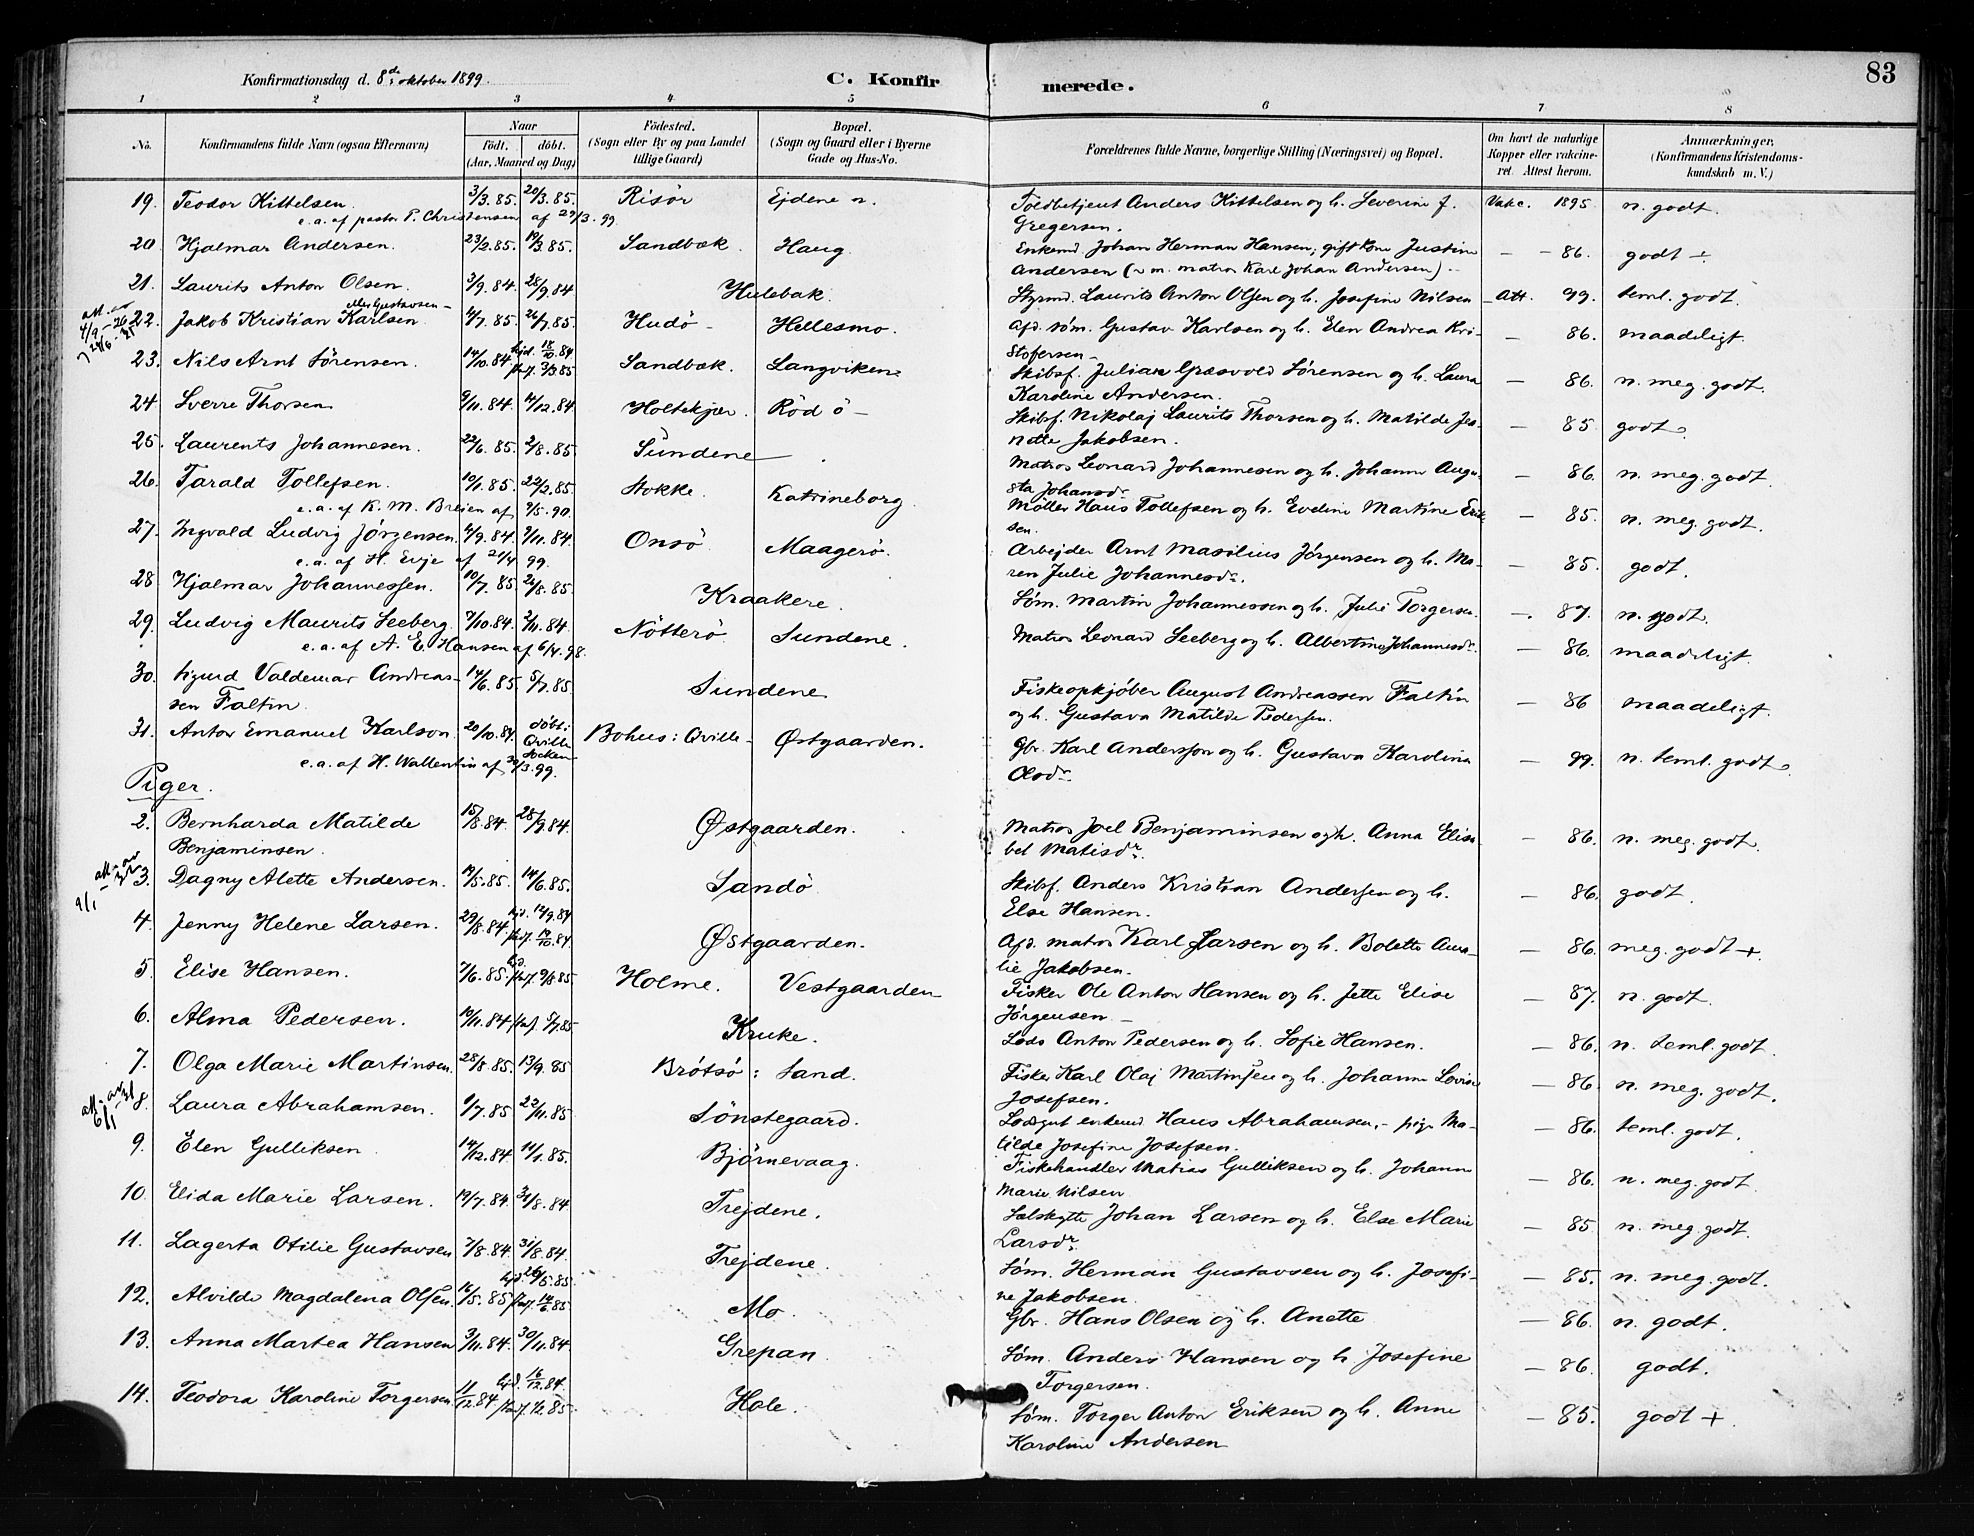 Konfirmationsdag d. 8de oktober 1899.
C. Konfirmerede.
83
1 2 3 4 5 6 7 8
No. Konfirmandens fulde Navn (ogsaa Efternavn) Naar Födt. döbt. (Aar, Maaned og Dag) Födested. (Sogn eller By og paa Landet tillige Gaard) Bopæl. (Sogn og Gaard eller i Byerne Gade og Hus-No. Forældrenes fulde Navne, borgerlige Stilling (Næringsvei) og Bopæl. Om havt de naturlige Kopper eller vakcineret. Attest herom. Anmærkninger. (Konfirmandens Kristendomskundskab m. V.)
19. Teodor Kittelsen. 3/3.85. 20/3.85. Risör Ejdene n. Toldbetjent Anders Kittelsen og h. Severine f. Vakc. 1895 n. godt.
e.a. af pastor P. Christensen af 29/3.99. Gregersen.
20. Hjalmar Andersen. 23/2.85. 19/3.85. Sandbæk. Haug. Enkemd Johan Herman Hansen, gift kone Justine – – 86. godt ÷
Andersen (v. m. matros Karl Johan Andersen)
21. Laurits Anton Olsen. 3/9.84. 28/9.84 Hulebak. Styrmd. Laurits Anton Olsen og h. Josefine Nilsen – Att. 99. teml. godt.
eller Gustavsen
22. Jakob Kristian Karlsen 4/7.85. 26/7.85. Hudö – Hellesmo. Afd. söm. Gustav Karlsen og h. Elen Andrea Kri- – 86. maadeligt.
stofersen –
23. Nils Arnt Sörensen. 14/10.84. hjd. 18/10.84 stadf. 3/3.85 Sandbæk. Langvikene Skibsf. Julian Græsvold Sörensen og h. Laura – 86. n. meg. godt.
Karoline Andersen.
24. Sverre Thorsen 9/11.84. 14/12.84. Holtekjær. Röd ö – Skibsf. Nikolaj Laurits Thorsen og h. Matilde Jea- – 85. godt.
nette Jakobsen.
25. Laurents Johannesen. 22/6.85. 2/8.85 Sundene Matros Leonard Johannesen og h. Johanne Augu- – 86. n. meg. godt.
sta Johansdr
26. Tarald Tollefsen. 10/1.85. 22/2.85. Stokke. Katrineborg. Möller Hans Tollefsen og h. Eveline Martine Erik- – 85. n. meg. godt.
e.a. af K. M. Breien af 9/5.90. sen.
27. Ingvald Ludvig Jörgensen. 4/9.84. 9/11.84. Onsö Maagerö. Arbejder Arnt Masilius Jörgensen og h. Ma- – 85. godt.
e.a. af H. Evje af 21/4 99. ren Julie Johannesdr.
28 Hjalmar Johannessen. 10/7.85 24/8.85. Kraakere. Söm. Martin Johannessen og h. Julie Torgersen. –. 87. n. godt.
29. Ludvig Maurits Seeberg. 7/10.84. 2/11.84. Nötterö. Sundene. Matros Leonard Seeberg og h. Albertine Johannesdr. – 86. maadeligt.
e.a. af A. E. Hansen af 6/4.98.
30. Sigurd Valdemar Andreas- 14/6.85. 5/7.85. Sundene Fiskeopkjöber August Andreassen Faltin – 86 maadeligt.
sen Faltin. og h. Gustava Matilde Pedersen.
31. Anton Emanuel Karlson. 20/10.84. döbt i Qville Socken Bohus: Qville – Östgaarden. Gbr. Karl Andersson og h. Gustava Karolina – 99. n. teml. godt.
e.a. af H. Wallentin af 30/3.99. Olsdr.
Piger.
2. Bernharda Matilde 15/8.84. 28/9.84. Östgaarden. Matros Joel Benjaminsen og h. Anna Elisa- – 86. n. meg. godt.
Benjaminsen. bet Matisdr.
3. Dagny Alette Andersen. 19/5.85. 14/6.85. Sandö. Skibsf. Anders Kristian Andersen og h. – 86. godt.
Else Hansen.
4. Jenny Helene Larsen. 29/8.84. hjd. 12/9.84 stadf. 19/10.84. Östgaarden. Afd. matros Karl Larsen og h. Bolette Ama- – 86. meg. godt +.
lie Jakobsen.
5. Elise Hansen. 7/6.85. hjd. stadf. 9/8.85 Holme. Vestgaarden Fisker Ole Anton Hansen og h. Jette Elise – 87. n. godt.
Jörgensen –
6. Alma Pedersen. 19/11.84 stadf. 5/7.85 Kruke. Lods Anton Pedersen og h. Sofie Hansen. – 86. n. teml. godt.
7. Olga Marie Martinsen. 28/8.85. 13/9.85 Brötsö: Sand. Fisker Karl Olaj Martinsen og h. Johanne Lovise – 86. n. meg. godt.
Josefsen.
8. Laura Abrahamsen. 9/7.85 22/11.85 Sönstegaard. Lodsgut enkemd Hans Abrahamsen, – pige Ma- – 86. teml. godt.
tilde Josefine Josefsen.
9. Elen Gulliksen 14/12.84 11/1.85. Björnevaag. Fiskehandler Matias Gulliksen og h. Johanne – 86. n. meg. godt.
Marie Nilsen
10. Elida Marie Larsen. 19/7.84. 31/8.84 Trejdene. Sælskytte Johan Larsen og h. Else Marie – 85. n. meg. godt.
Larsdr.
11. Lagerta Otilie Gustavsen 7/8.84. 31/8.84. Trejdene. Söm. Herman Gustavsen og h. Josefi- – 85. n. meg. godt.
ne Jakobsen.
12. Alvilde Magdalena Olsen. 16/5.85 hjd. 26/5.85. stadf. 14/6.85 Mo. Gbr. Hans Olsen og h. Anette – 86. n. godt.
13. Anna Martea Hansen 3/11.84. 30/11.84 Grepan. Söm. Anders Hansen og h. Josefine – 86. godt.
Torgersen.
14. Teodora Karoline Torgersen. 11/12.84 hjd. 16/12.84. Hole. Söm. Torger Anton Eriksen og h. Anne – 85. godt +
Karoline Andersen